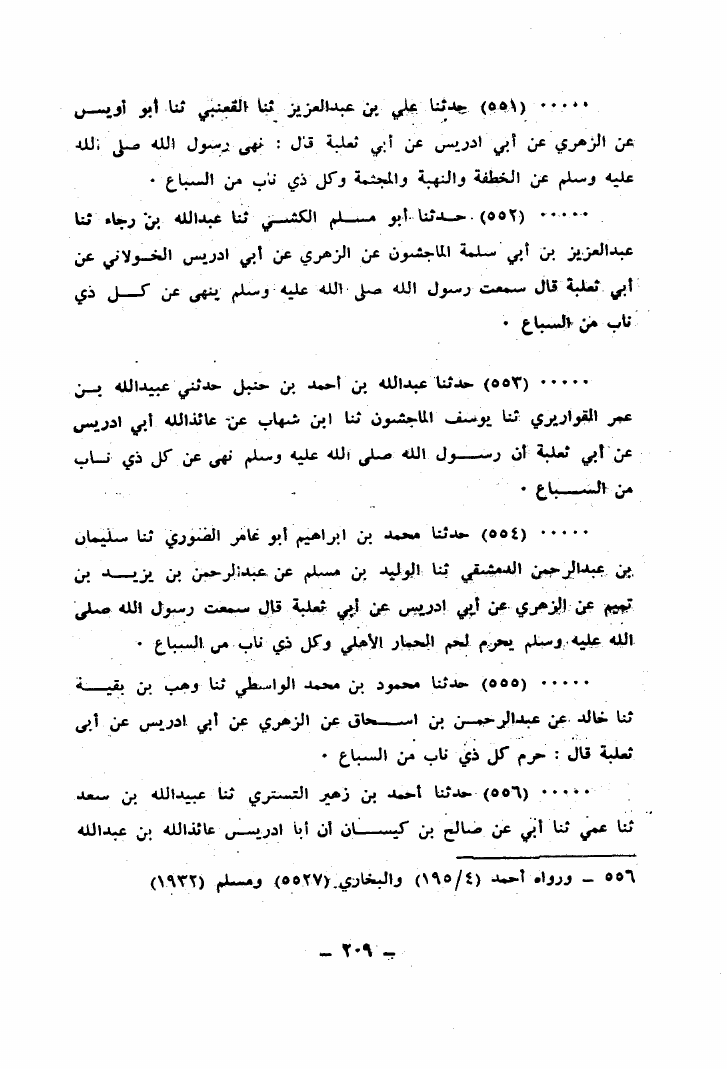 ..... (٥٥١) حدثنا علي بن عبدالعزيز ثنا القعنبي ثنا أبو أويس
عن الزهري عن أبي ادريس عن أبي ثعلبة قال : نهى رسول الله صلى الله
عليه وسلم عن الخطفة والنهبة والمجثمة وكل ذي ناب من السباع .
..... (٥٥٢) حدثنا أبو مسلم الكشي ثنا عبدالله بن رجاء ثنا
عبدالعزيز بن أبي سلمة الماجشون عن الزهري عن أبي ادريس الخولاني عن
أبي ثعلبة قال سمعت رسول الله صلى الله عليه وسلم ينهى عن كل ذي
ناب من السباع .
..... (٥٥٣) حدثنا عبدالله بن أحمد بن حنبل حدثني عبيدالله بن
عمر القواريري ثنا يوسف الماجشون ثنا ابن شهاب عن عائذالله أبي ادريس
عن أبي ثعلبة أن رسول الله صلى الله عليه وسلم نهى عن كل ذي ناب
من السباع .
..... (٥٥٤) حدثنا محمد بن ابراهيم أبو عامر الصوري ثنا سليمان
بن عبدالرحمن الدمشقي ثنا الوليد بن مسلم عن عبدالرحمن بن يزيد بن
تميم عن الزهري عن أبي ادريس عن أبي ثعلبة قال سمعت رسول الله صلى
الله عليه وسلم يحرم لحم الحمار الأهلي وكل ذي ناب من السباع .
..... (٥٥٥) حدثنا محمود بن محمد الواسطي ثنا وهب بن بقية
ثنا خالد عن عبدالرحمن بن اسحاق عن الزهري عن أبي ادريس عن أبى
ثعلبة قال : حرم كل ذي ناب من السباع .
..... (٥٥٦) حدثنا أحمد بن زهير التستري ثنا عبيدالله بن سعد
ثنا عمي ثنا أبي عن صالح بن كيسان أن أبا ادريس عائذالله بن عبدالله
٥٥٦ – ورواه أحمد (١٩٥/٤) والبخاري (٥٥٢٧) ومسلم (١٩٣٢)
– ٢٠٩ –